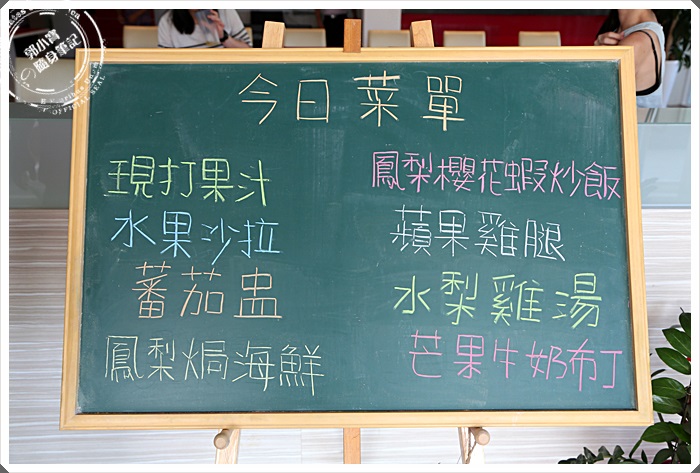 今日菜單
現打果汁
水果沙拉
蕃茄盅
鳳梨焗海鮮
鳳梨櫻花蝦炒飯
蘋果雞腿
水梨雞湯
芒果牛奶布丁
郭小寶
の隨身筆記